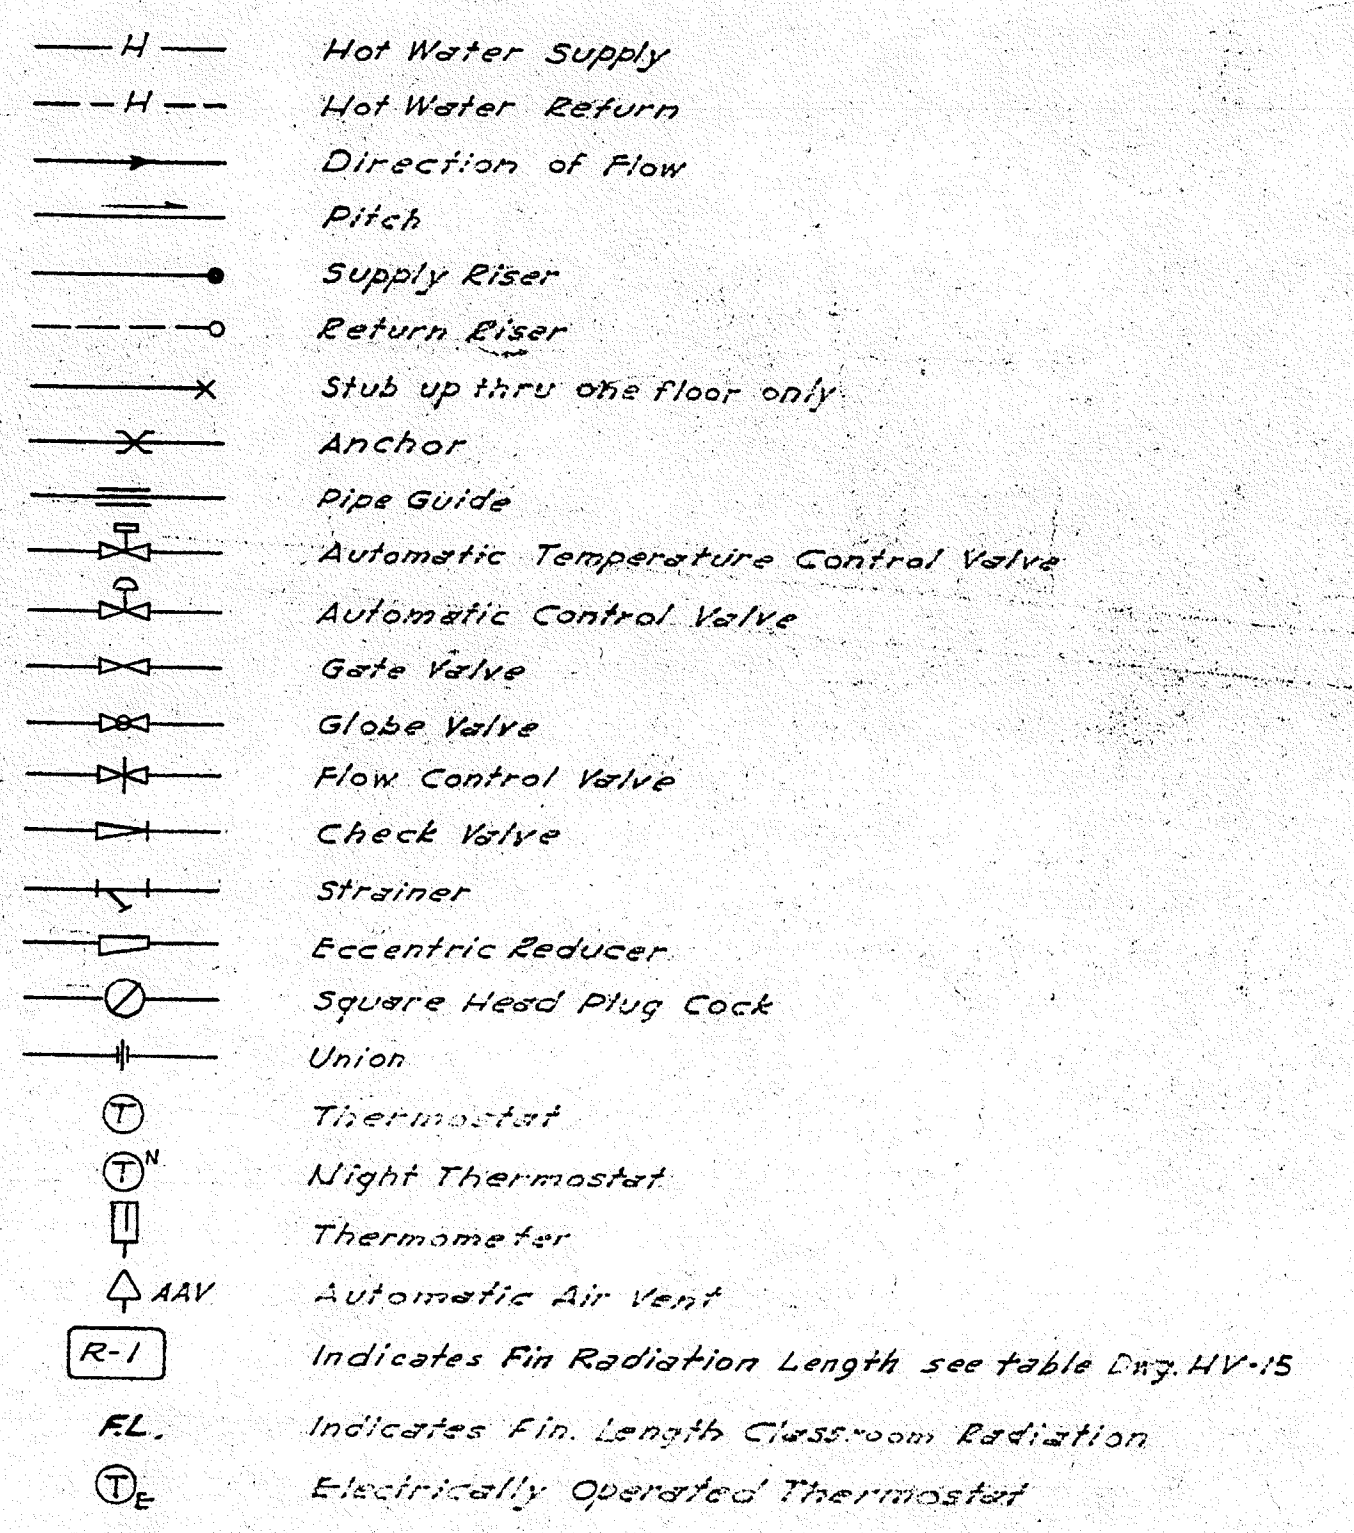 H Hot Water Supply
H Hot Water Return
Direction of Flow
Pitch
Supply Riser
Return Riser
Stub up thru one floor only
Anchor
Pipe Guide
Automatic Temperature Control Valve
Automatic Control Valve
Gate Valve
Globe Valve
Flow Control Valve
Check Valve
Strainer
Eccentric Reducer
Square Head Plug Cock
Union
T Thermostat
T N Night Thermostat
Thermometer
AAV Automatic Air Vent
R-1 Indicates Fin Radiation Length see table Dwg. HV-15
F.L. Indicates Fin. Length Classroom Radiation
T E Electrically Operated Thermostat